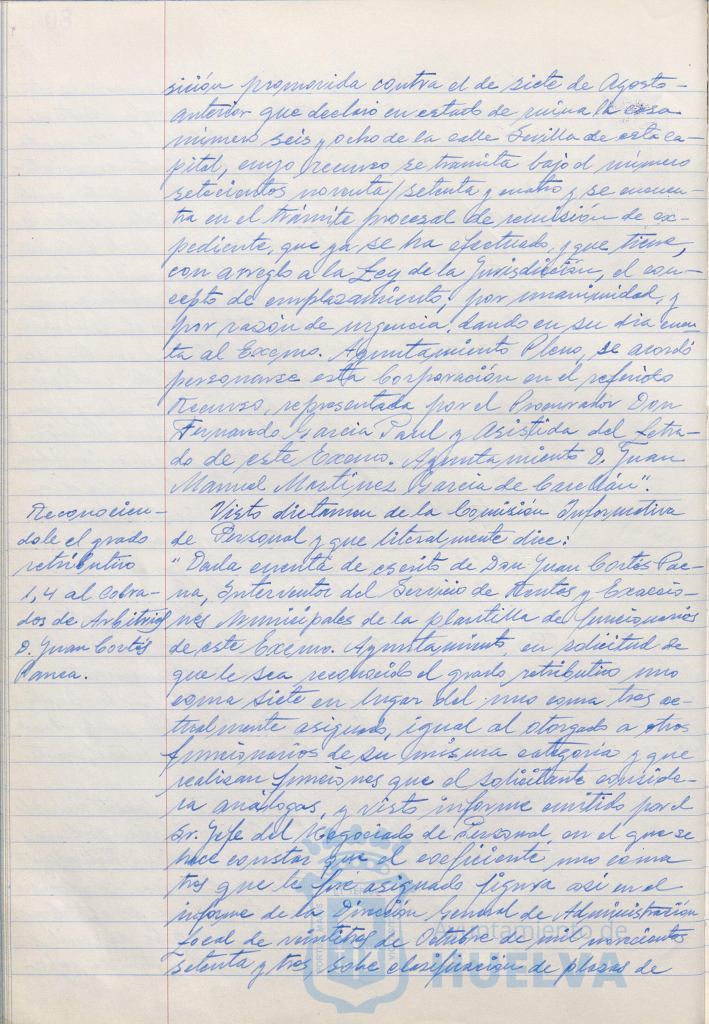 sición promovida contra el de siete de Agosto
anterior que declaró en estado de ruina la casa
número seis y ocho de la calle Sevilla de esta ca-
pital, cuyo recurso se tramita bajo el número
setecientos noventa/setenta y cuatro y se encuen-
tra en el trámite procesal de remisión de ex-
pediente, que ya se ha efectuado, y que tiene,
con arreglo a la Ley de la Jurisdicción, el con-
cepto de emplazamiento, por unanimidad, y
por razón de urgencia, dando en su dia cuen-
ta al Excmo. Ayuntamiento Pleno, se acordó
personarse esta Corporación en el referido
Recurso, representada por el Procurador Don
Fernando Garcia Paul y asistida del Letra-
do de este Excmo. Ayuntamiento D. Juan
Manuel Martinez Garcia de
Reconocien-
dole el grado
retributivo
1,4 al Cobra-
dor de Arbitrios
D. Juan Cortés
Visto dictamen de la Comisión Informativa
de Personal y que literalmente dice:
"Dada cuenta de escrito de Don Juan Cortés
Interventor del Servicio de Rentas y Exaccio-
nes Municipales de la plantilla de funcionarios
de este Excmo. Ayuntamiento, en solicitud de
que le sea reconocido el grado retributivo uno
coma siete en lugar del uno coma tres ac-
tualmente asignado, igual al otorgado a otros
funcionarios de su misma categoria y que
realizan funciones que el solicitante conside-
ra análogas, y visto informe emitido por el
Sr. Jefe del Negociado de Personal en el que se
hace constar que el coeficiente uno coma
tres que le fue asignado figura asi en el
informe de la Dirección General de Administración
Local de veintitres de Octubre de mil novecientos
setenta y tres, sobre clasificación de plazas de
Ayuntamiento de
HUELVA